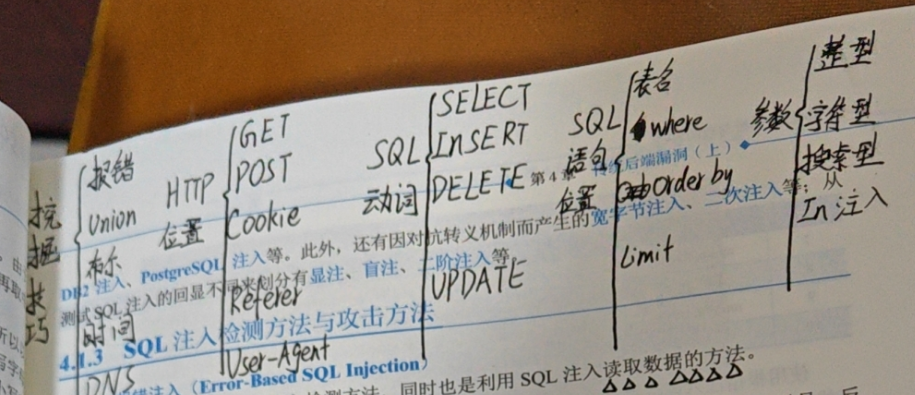 挖掘技巧
报错
Union
布尔
时间
DNS
HTTP位置
GET
POST
Cookie
Referer
User-Agent
SQL动词
SELECT
InSERT
DELETE
UPDATE
SQL语句位置
表名
where
Order by
Limit
参数
整型
字符型
搜索型
In 注入
第 4 章 传统后端漏洞（上）
DB2 注入、PostgreSQL 注入等。此外，还有因对抗转义机制而产生的宽字节注入、二次注入等；从
测试 SQL 注入的回显不同来划分有显注、盲注、二阶注入等。
4.1.3 SQL 注入检测方法与攻击方法
注入（Error-Based SQL Injection）
检测方法，同时也是利用 SQL 注入读取数据的方法。